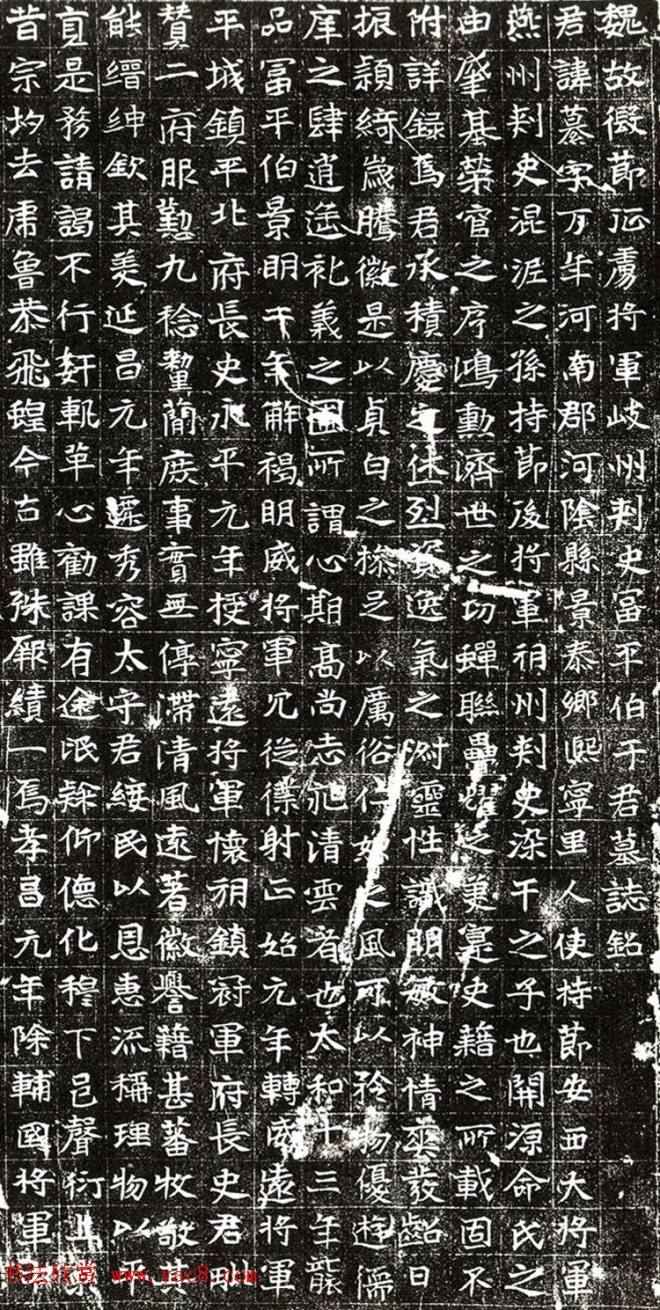 魏故假節征虜將軍岐州刾史富平伯于君墓誌銘
君諱纂字万年河南郡河陰縣景泰鄉熙寧里人使持節安西大將軍
燕州刾史混泥之孫持節後將軍朔州刾史染干之子也開源命氏之
由肇基榮官之序鴻勳濟世之功蟬聯疊耀之美寔史籍之所載固不
附詳錄焉君承積慶之休烈資逸氣之渊靈性識朗敏神情爽發齠日
振穎綺歲騰徽是以貞白之操足以厲俗仁恕之風可以矜物優遊儒
庠之肆逍遙礼義之圃所謂心期高尚志清雲者也太和十三年龍
品富平伯景明二年解褐明威將軍冗從僕射正始元年轉威遠將軍
平城鎮平北府長史永平元年授寧遠將軍懷朔鎮冠軍府長史君
贊二府服懃九稔簡庶事無停滯清風遠著徽譽籍甚蕃牧敬其
能縉紳欽其美延昌元年遷秀容太守君綏民以恩惠流稱理物以平
直是務請謁不行奸軌革心勸課有途仰德化穆下邑聲衍上京
昔宗均去虎魯恭飛蝗今古雖殊厥績一焉孝昌元年除輔國將軍
书法欣赏 www.yac8.com